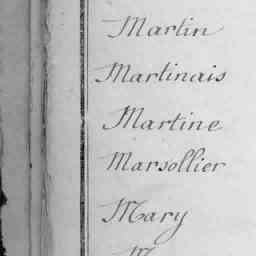 Martin
Martinais
Martine
Marsollier
Mary